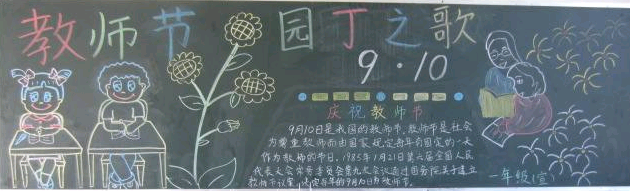 教师节 园丁之歌
9·10
庆祝教师节
9月10日是我国的教师节,教师节是社会
为尊重教师而由国家规定每年有固定的一天
作为教师的节日,1985年1月21日第六届全国人民
代表大会常务委员会第九次会议通过国务院关于建立
教师节议案,决定每年的9月10日为教师节。
一年级1室